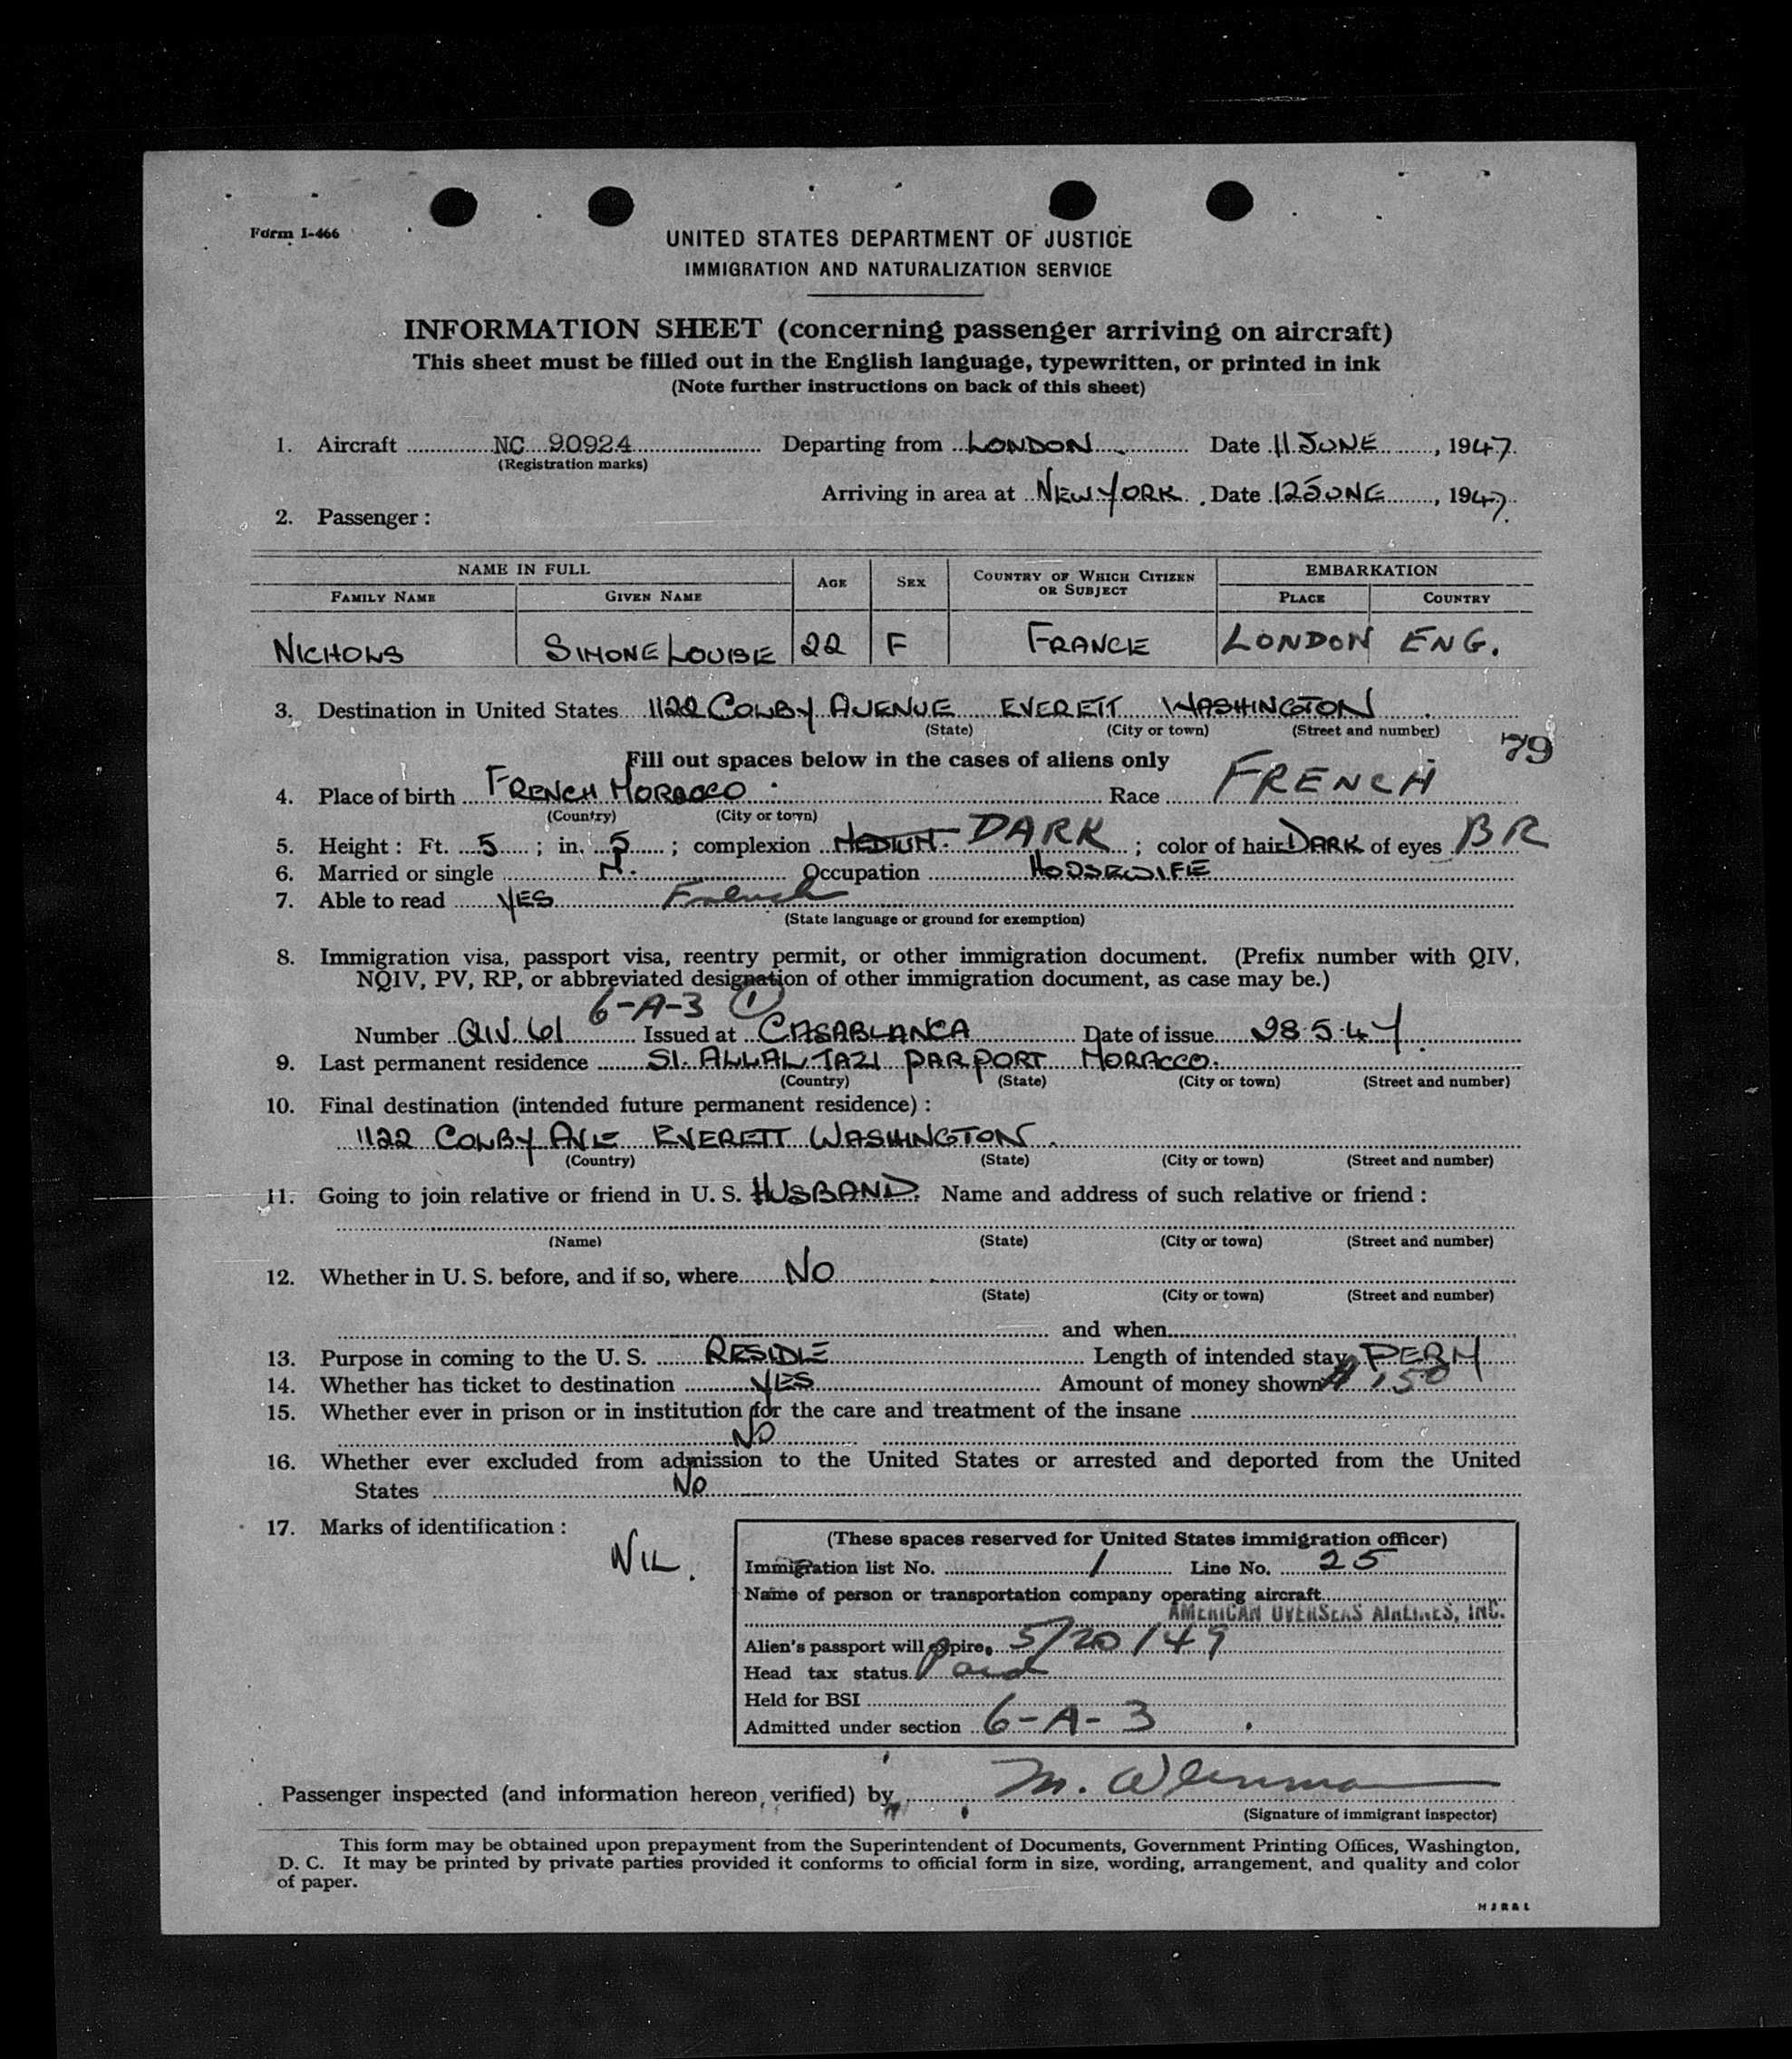 Form I-466
UNITED STATES DEPARTMENT OF JUSTICE
IMMIGRATION AND NATURALIZATION SERVICE
INFORMATION SHEET (concerning passenger arriving on aircraft)
This sheet must be filled out in the English language, typewritten, or printed in ink
(Note further instructions on back of this sheet)
1. Aircraft NC 90924 Departing from LONDON Date 11 JUNE, 1947
(Registration marks)
Arriving in area at NEW YORK. Date 12 JUNE, 1947.
2. Passenger:
NAME IN FULL AGE SEX COUNTRY OF WHICH CITIZEN OR SUBJECT EMBARKATION
FAMILY NAME GIVEN NAME PLACE COUNTRY
NICHOLS SIMONE LOUISE 22 F FRANCE LONDON ENG.
3. Destination in United States 1122 COLBY AVENUE EVERETT WASHINGTON
(State) (City or town) (Street and number)
79
Fill out spaces below in the cases of aliens only
4. Place of birth FRENCH MORACCO Race FRENCH
(Country) (City or town)
5. Height: Ft. 5; in. 5; complexion MEDIUM. DARK; color of hair DARK of eyes BR
6. Married or single M. Occupation HOUSEWIFE
7. Able to read YES French
(State language or ground for exemption)
8. Immigration visa, passport visa, reentry permit, or other immigration document. (Prefix number with QIV,
NQIV, PV, RP, or abbreviated designation of other immigration document, as case may be.)
6-A-3 (1)
Number QIV. 61 Issued at CASABLANCA Date of issue 28.5.47
9. Last permanent residence SI. ALLAL TAZI PAR PORT MORACCO.
(Country) (State) (City or town) (Street and number)
10. Final destination (intended future permanent residence):
1122 COLBY AVE EVERETT WASHINGTON.
(Country) (State) (City or town) (Street and number)
11. Going to join relative or friend in U. S. HUSBAND. Name and address of such relative or friend:
(Name) (State) (City or town) (Street and number)
12. Whether in U. S. before, and if so, where NO
(State) (City or town) (Street and number)
and when
13. Purpose in coming to the U. S. RESIDE Length of intended stay PERM
14. Whether has ticket to destination YES Amount of money shown
15. Whether ever in prison or in institution for the care and treatment of the insane
NO
16. Whether ever excluded from admission to the United States or arrested and deported from the United
States NO
17. Marks of identification:
NIL.
(These spaces reserved for United States immigration officer)
Immigration list No. 1 Line No. 25
Name of person or transportation company operating aircraft
AMERICAN OVERSEAS AIRLINES, INC.
Alien's passport will expire, 5/20/49
Head tax status Paid
Held for BSI
Admitted under section 6-A-3
Passenger inspected (and information hereon verified) by M.
(Signature of immigrant inspector)
This form may be obtained upon prepayment from the Superintendent of Documents, Government Printing Offices, Washington,
D. C. It may be printed by private parties provided it conforms to official form in size, wording, arrangement, and quality and color
of paper.